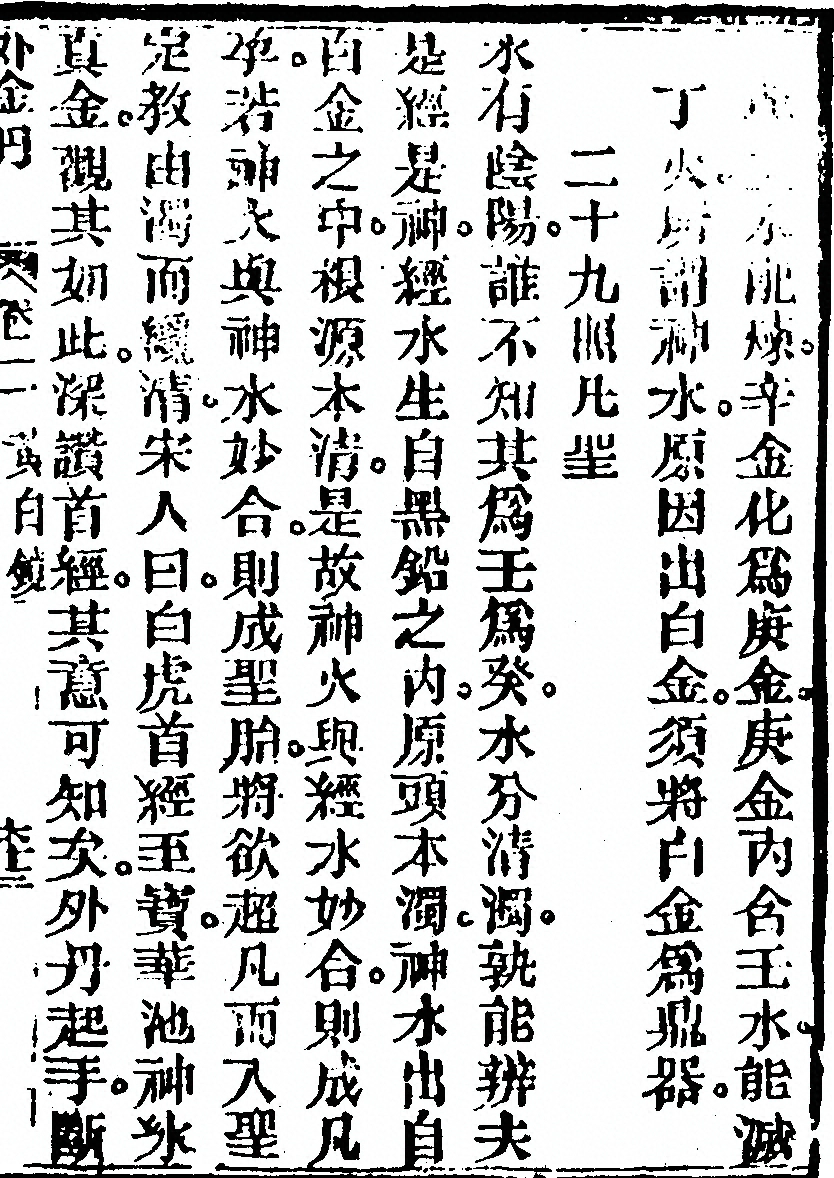 水能煉。辛金化爲庚金。庚金內含壬水。能滅
丁火。所謂神水。原因出白金。須將白金爲鼎器。
二十九照凡聖
水有陰陽。誰不知其爲壬爲癸。水分清濁。孰能辨夫
是經是神。經水生自黑鉛之內。原頭本濁。神水出自
白金之中。根源本清。是故神火與經水妙合。則成凡
孕。若神火與神水妙合。則成聖胎。將欲超凡而入聖
定教由濁而纔清。宋人曰。白虎首經至寶。華池神水
真金。觀其如此。深讚首經。其意可知次。外丹起手。斷
外金丹 卷二 黃白鏡